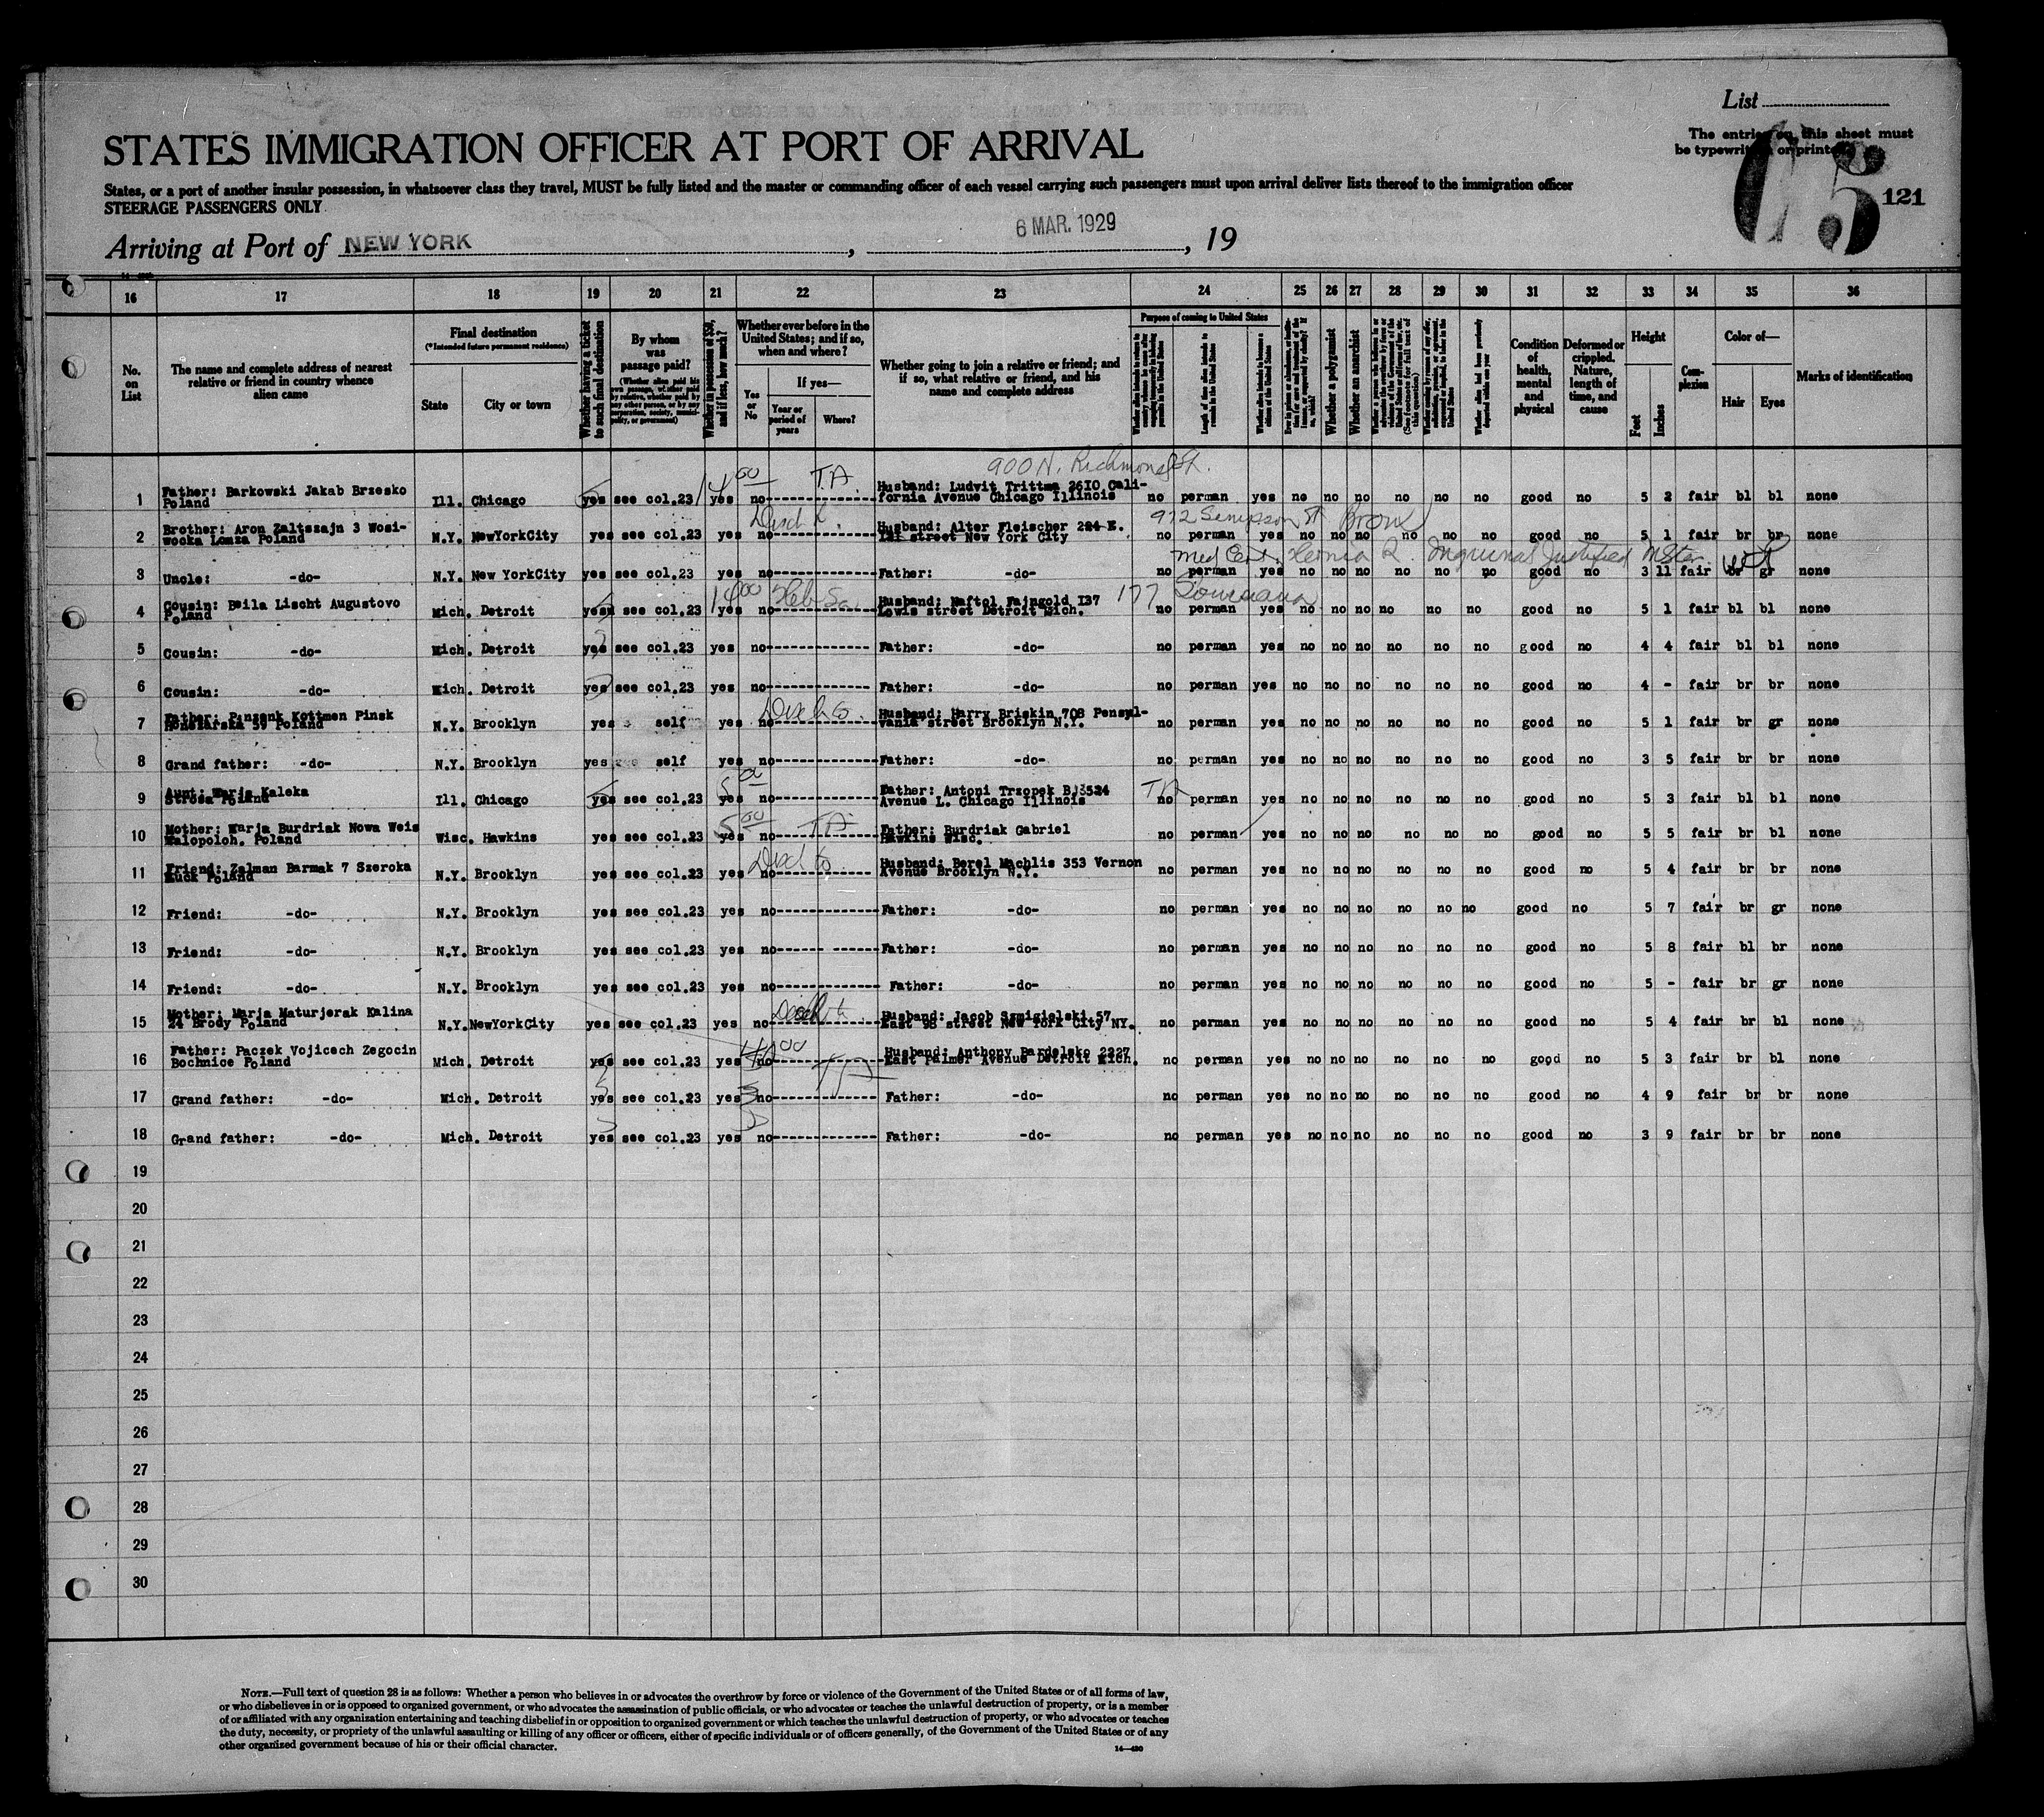 List
STATES IMMIGRATION OFFICER AT PORT OF ARRIVAL
The entries on this sheet must
be typewritten or printed
States, or a port of another insular possession, in whatsoever class they travel, MUST be fully listed and the master or commanding officer of each vessel carrying such passengers must upon arrival deliver lists thereof to the immigration officer
STEERAGE PASSENGERS ONLY
5 121
Arriving at Port of NEW YORK, 6 MAR. 1929, 19
16 17 18 19 20 21 22 23 24 25 26 27 28 29 30 31 32 33 34 35 36
No. on List
The name and complete address of nearest relative or friend in country whence alien came
Final destination
(*Intended future permanent residence)
State
City or town
Whether having a ticket to such final destination
By whom was passage paid?
Whether in possession of $50, and if less, how much?
Whether ever before in the United States; and if so, when and where?
Yes or No
If yes—
Year or period of years
Where?
Whether going to join a relative or friend; and if so, what relative or friend, and his name and complete address
Purpose of coming to United States
Length of time alien intends to remain in the United States
Whether alien intends to become a citizen of the United States
Whether a polygamist
Whether an anarchist
Condition of health, mental and physical
Deformed or crippled. Nature, length of time, and cause
Height
Feet
Inches
Complexion
Color of—
Hair
Eyes
Marks of identification
900 N. Richmond St.
1 Father: Barkowski Jakab Brzesko Poland Ill. Chicago yes see col.23 14 00 yes no T.A. Husband: Ludvit Trittma 2610 California Avenue Chicago Illinois no perman yes no no no no no no good no 5 2 fair bl bl none
972 Simpson St Bronx
2 Brother: Aron Zaltszajn 3 Wosiwooka Lomza Poland N.Y. NewYorkCity yes see col.23 yes no Husband: Alter Fleischer 224 E. 121 street New York City no perman yes no no no no no no good no 5 1 fair br br none
Med Cert. Hernia R. Inguinal Justified
3 Uncle: -do- N.Y. New YorkCity yes see col.23 yes no Father: -do- no perman yes no no no no no no good no 3 11 fair br gr none
177 Louisiana
4 Cousin: Beila Lischt Augustovo Poland Mich. Detroit yes see col.23 14 00 yes no Heb So Husband: Naftol Faingold 137 Lewis street Detroit Mich. no perman yes no no no no no no good no 5 1 fair bl bl none
5 Cousin: -do- Mich. Detroit yes see col.23 yes no Father: -do- no perman yes no no no no no no good no 4 4 fair bl bl none
6 Cousin: -do- Mich. Detroit yes see col.23 yes no Father: -do- no perman yes no no no no no no good no 4 - fair br br none
7 Father: Pinzenk Kottmen Pinsk Honczarska 59 Poland N.Y. Brooklyn yes self yes no Husband: Harry Briskin 708 Pensylvania street Brooklyn N.Y. no perman yes no no no no no no good no 5 1 fair br gr none
8 Grand father: -do- N.Y. Brooklyn yes self yes no Father: -do- no perman yes no no no no no no good no 3 5 fair br br none
9 Aunt: Marja Kaleka Strosa Poland Ill. Chicago yes see col.23 yes no Father: Antoni Trzopek B.13524 Avenue L. Chicago Illinois TA no perman yes no no no no no no good no 5 3 fair bl bl none
10 Mother: Marja Burdriak Nowa Weis Malopoloh. Poland Wisc. Hawkins yes see col.23 5 00 yes no TA Father: Burdriak Gabriel Hawkins Wisc. no perman yes no no no no no no good no 5 5 fair br bl none
11 Friend: Zelman Barmak 7 Szeroka Luck Poland N.Y. Brooklyn yes see col.23 yes no Disch to Husband: Berel Machlis 353 Vernon Avenue Brooklyn N.Y. no perman yes no no no no no no good no 5 4 fair br br none
12 Friend: -do- N.Y. Brooklyn yes see col.23 yes no Father: -do- no perman yes no no no no no no good no 5 7 fair br gr none
13 Friend: -do- N.Y. Brooklyn yes see col.23 yes no Father: -do- no perman yes no no no no no no good no 5 8 fair bl br none
14 Friend: -do- N.Y. Brooklyn yes see col.23 yes no Father: -do- no perman yes no no no no no no good no 5 - fair br gr none
15 Mother: Marja Maturjerak Kalina 24 Brody Poland N.Y. NewYorkCity yes see col.23 yes no Husband: Jacob Szmigielski 57 East 98 street New York City NY. no perman yes no no no no no no good no 5 4 fair br bl none
16 Father: Paczek Vojicech Zegocin Bochnice Poland Mich. Detroit yes see col.23 yes no Husband: Anthony Bardelsko 2227 East Palmer Avenue Detroit Mich. no perman yes no no no no no no good no 5 3 fair br bl none
17 Grand father: -do- Mich. Detroit yes see col.23 yes no Father: -do- no perman yes no no no no no no good no 4 9 fair br br none
18 Grand father: -do- Mich. Detroit yes see col.23 yes no Father: -do- no perman yes no no no no no no good no 3 9 fair br br none
19
20
21
22
23
24
25
26
27
28
29
30
NOTE.—Full text of question 28 is as follows: Whether a person who believes in or advocates the overthrow by force or violence of the Government of the United States or of all forms of law,
or who disbelieves in or is opposed to organized government, or who advocates the assassination of public officials, or who advocates or teaches the unlawful destruction of property, or is a member
of or affiliated with any organization entertaining and teaching disbelief in or opposition to organized government or which teaches the unlawful destruction of property, or who advocates or teaches
the duty, necessity, or propriety of the unlawful assaulting or killing of any officer or officers, either of specific individuals or of officers generally, of the Government of the United States or of any
other organized government because of his or their official character.
14—430